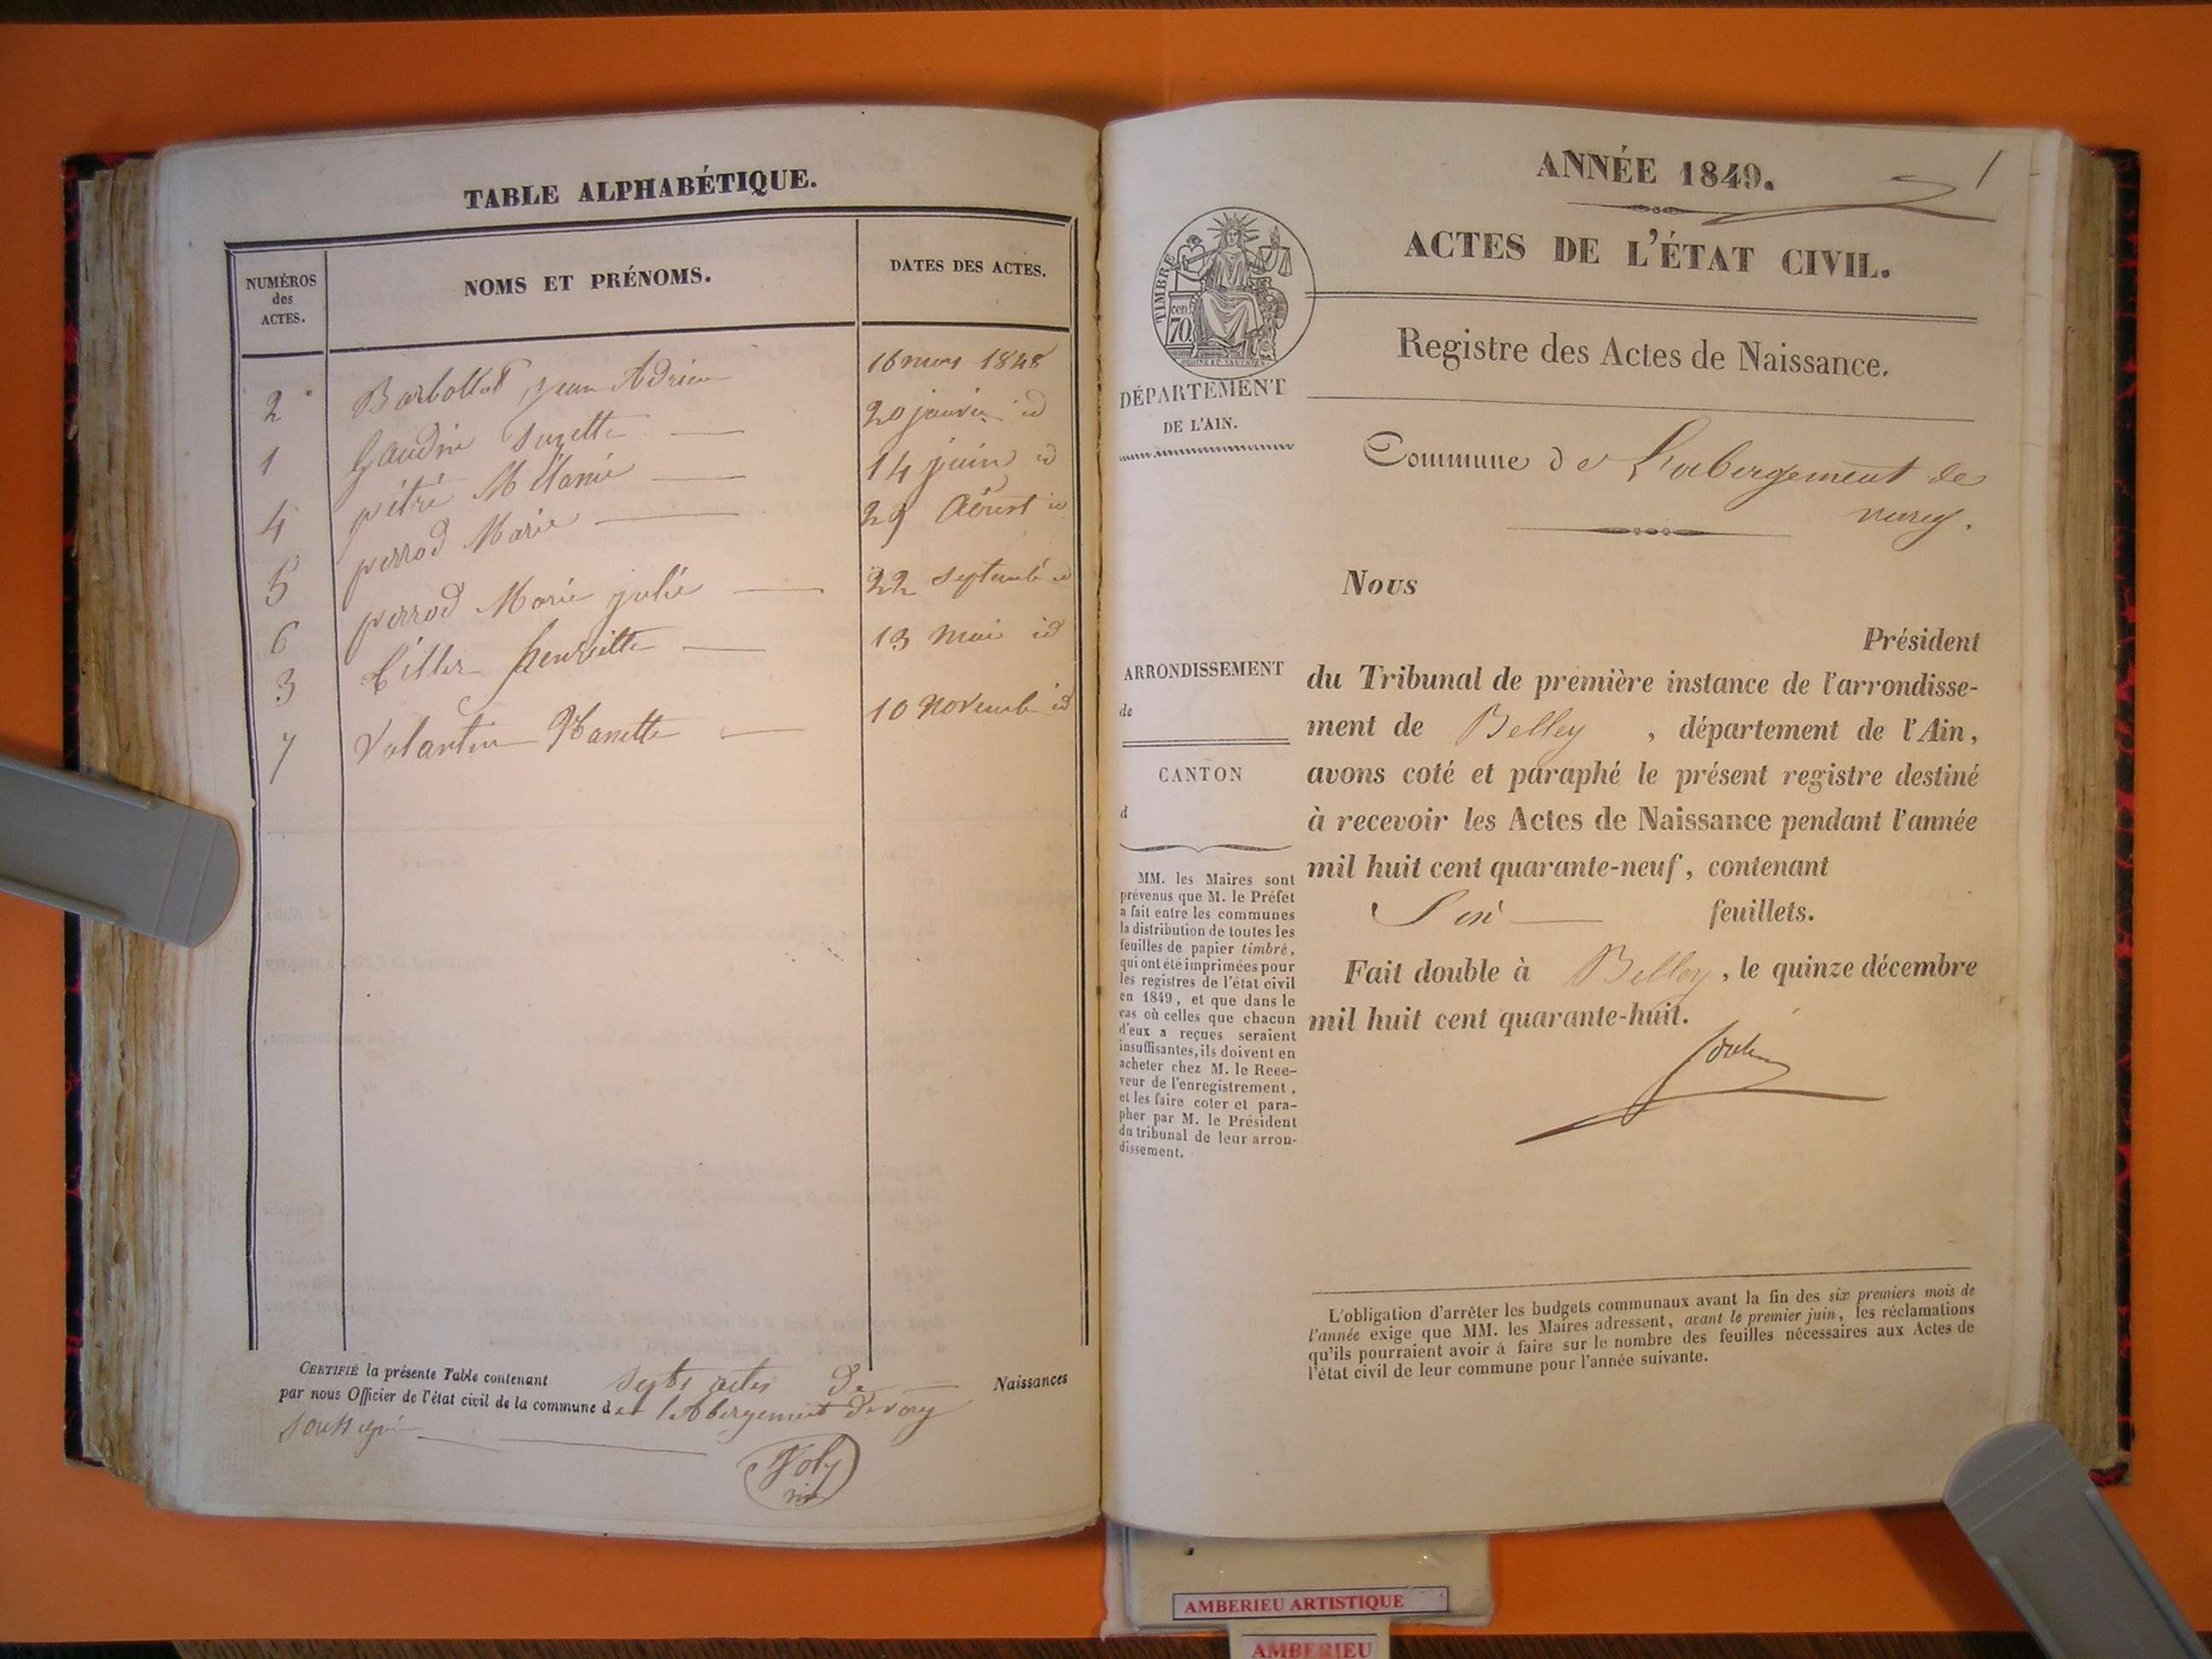 TABLE ALPHABÉTIQUE.
NUMÉROS
des
ACTES.
NOMS ET PRÉNOMS.
DATES DES ACTES.
2 Barbollat Jean Adrien 16 mars 1848
1 Gaudin Suzette 20 janvier id
4 pétré Mélanie 14 juin id
5 perrod Marie 29 Aôust id
6 perrod Marie julie 22 septembe id
3 henriette 13 mai id
7 Valantin Nanette 10 novemb id
CERTIFIÉ la présente Table contenant septs actes de Naissances
par nous Officier de l'état civil de la commune d l'Abergement de varey
Joly
ANNÉE 1849.
1
ACTES DE L'ÉTAT CIVIL.
Registre des Actes de Naissance.
TIMBRE
cen
70
DÉPARTEMENT
DE L'AIN.
Commune de L'abergement de
varey.
Nous
Président
du Tribunal de première instance de l'arrondisse-
ment de Belley , département de l'Ain,
avons coté et paraphé le présent registre destiné
à recevoir les Actes de Naissance pendant l'année
mil huit cent quarante-neuf, contenant
Six feuillets.
Fait double à Belley, le quinze décembre
mil huit cent quarante-huit.
ARRONDISSEMENT
de
CANTON
d
MM. les Maires sont
prévenus que M. le Préfet
a fait entre les communes
la distribution de toutes les
feuilles de papier timbré,
qui ont été imprimées pour
les registres de l'état civil
en 1849, et que dans le
cas où celles que chacun
d'eux a reçues seraient
insuffisantes, ils doivent en
acheter chez M. le Rece-
veur de l'enregistrement,
et les faire coter et para-
pher par M. le Président
du tribunal de leur arron-
dissement.
L'obligation d'arrêter les budgets communaux avant la fin des six premiers mois de
l'année exige que MM. les Maires adressent, avant le premier juin, les réclamations
qu'ils pourraient avoir à faire sur le nombre des feuilles nécessaires aux Actes de
l'état civil de leur commune pour l'année suivante.
AMBERIEU ARTISTIQUE
AMBERIEU